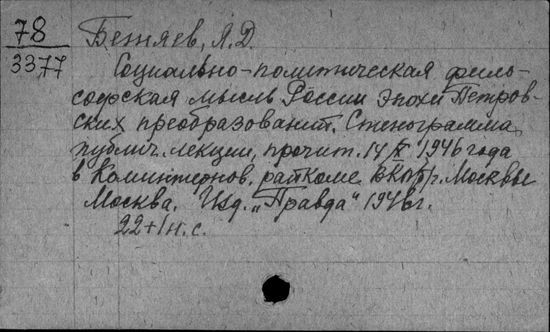 78
3377
Бетяев, Я.Д.
Социально-политическая фило-
софская мысль России эпохи Петров-
ских преобразований. Стенограмма
публич. лекции, прочит. 14/X 1946 года
в Коминтернов. райкоме ВКП/б/ г. Москвы
Москва. Изд. „Правда“ 1946 г.
22+1 н. с.